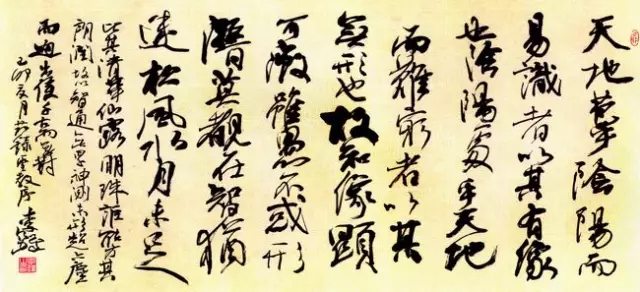 天地苞乎陰陽而
易識者以其有像
也陰陽處乎天地
而難窮者以其
無形也故知像顯
可徵雖愚不惑形
潛莫觀在智猶
迷松風水月未足
比其清華仙露明珠詎能方其
朗潤故智通無累神測未形超六塵
而迥出千古
卯夏月錄聖教序